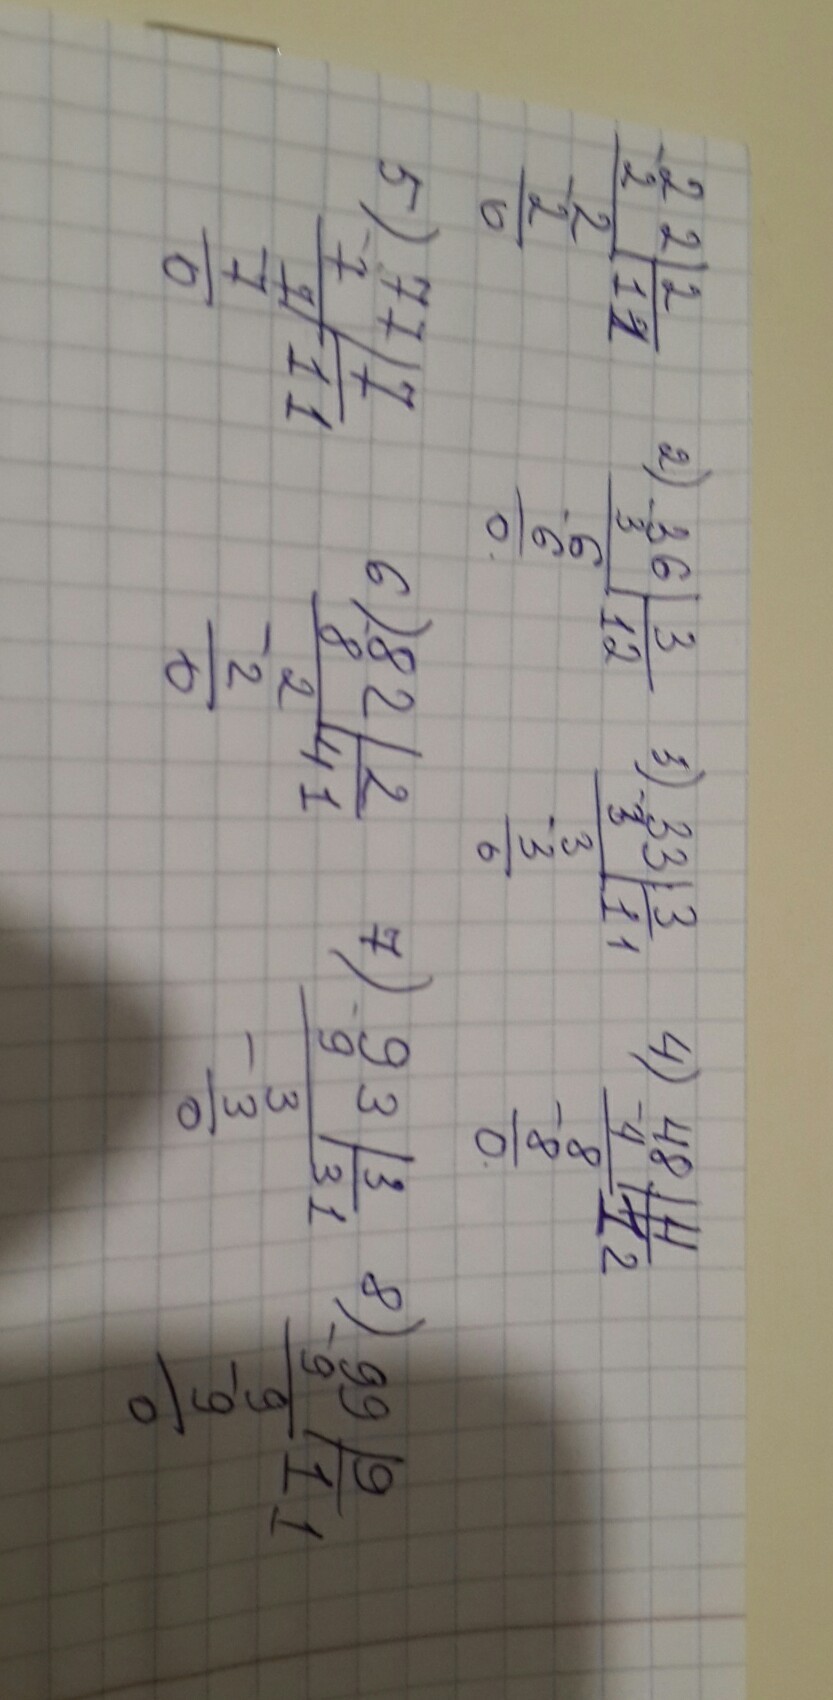 -22|2 2) -36|3 3) -33|3 4) 48|4
2 11 3 12 3 11 -4 12
-2 6 3 8
2 -6 -3 -8
0 0 0 0
5) 77|7 6) 82|2 7) 93|3 8) 99|9
-7 11 -8 41 -9 31 -9 11
7 2 3 9
-7 -2 -3 -9
0 0 0 0